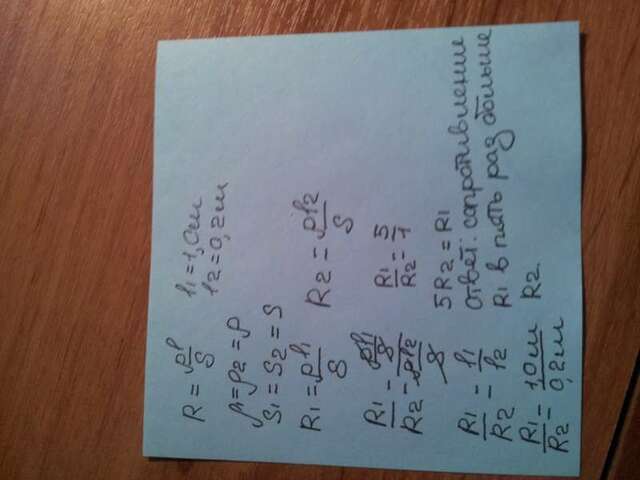 R = ρl/S l1=1,0 см
l2=0,2 см
ρ1=ρ2=ρ
S1=S2=S
R1=ρl1/S R2=ρl2/S
R1/R2=ρl1/S/ρl2/S R1/R2=5/1
R1/R2=l1/l2 5R2=R1
R1/R2=1,0 см/0,2 см Ответ: сопротивление
R1 в пять раз больше
R2.